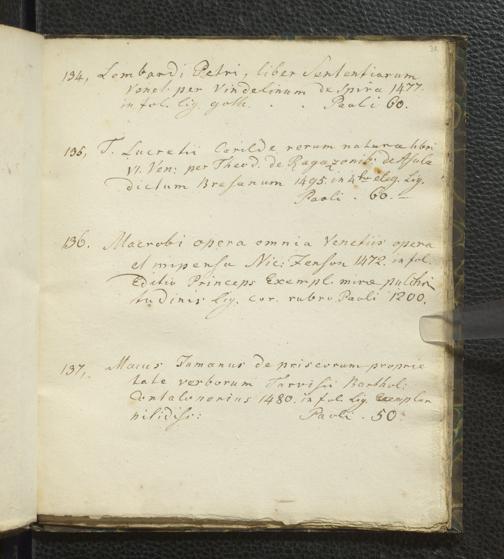 134, Lombardi Petri, liber Sententiarum
Venet. per Vindelinum de Spira 1477.
in fol. lig. goth. . . Paoli 60.
135, T. Lucretii Cari de rerum natura libri
VI. Ven: per Theod. de Ragazonib: de Asula
dictum Bresanum 1495. in 4to eleg. lig.
Paoli . 60.
136. Macrobi opera omnia Venetiis opera
et impensa Nic: Jenson 1472. in fol.
Editio Princeps Exempl. mire pulchri
tudinis lig. cor. rubro Paoli 1200.
137, Maius Junianus de priscorum proprie
tate verborum Tarvisii Barthol:
Confalonerius 1480. in fol. lig. exemplar
nitidiss: Paoli . 50.